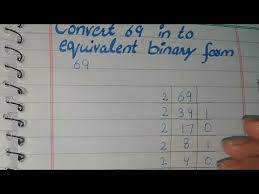 Convert 69 in to
equivalent binary form
69
2 | 69 |
2 | 34 | 1
2 | 17 | 0
2 | 8 | 1
2 | 4 | 0